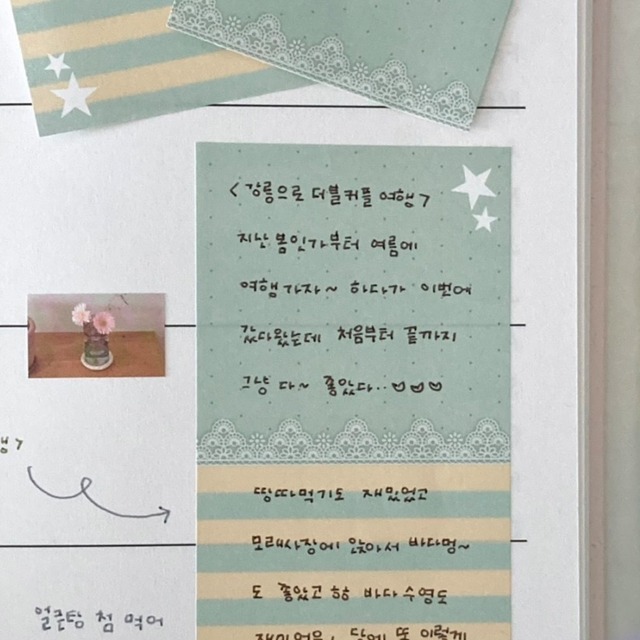 <강릉으로 더블커플 여행>
지난 봄인가부터 여름에
여행가자~ 하다가 이번에
갔다왔는데 처음부터 끝까지
그냥 다~ 좋았다..♡♡♡
행>
땅따먹기도 재밌었고
모래사장에 앉아서 바다멍~
도 좋았고 밤 바다수영도
얼큰탕 첨 먹어
재미있음! 담에 또 이렇게